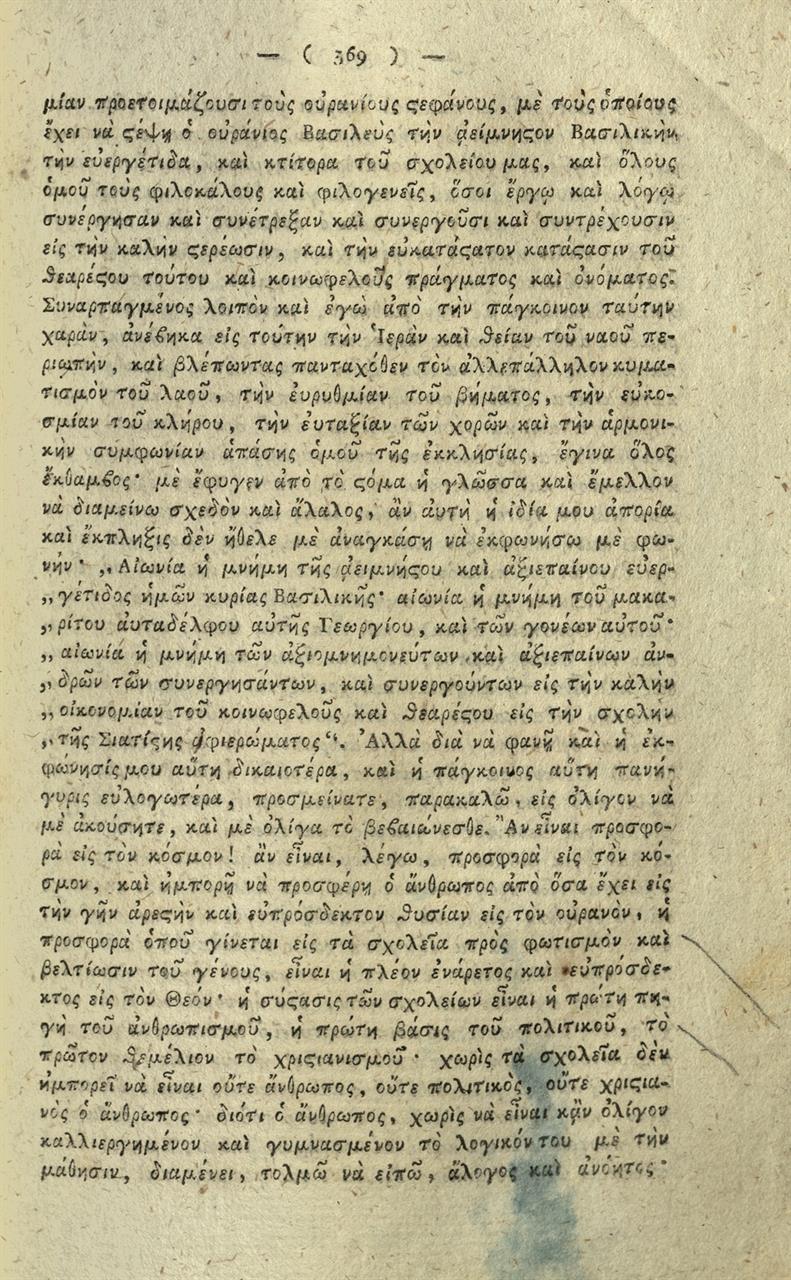 — ( 369 ) —
μίαν προετοιμάζουσι τοὺς οὐρανίους ϛεφάνους, μὲ τοὺς ὁποίους
ἔχει νὰ ϛέψῃ ὁ οὐράνιος Βασιλεὺς τὴν ἀείμνηϛον Βασιλικὴν,
τὴν εὐεργέτιδα, καὶ κτίτορα τοῦ σχολείου μας, καὶ ὅλους
ὁμοῦ τοὺς φιλοκάλους καὶ φιλογενεῖς, ὅσοι ἔργῳ καὶ λόγῳ
συνέργησαν καὶ συνέτρεξαν καὶ συνεργοῦσι καὶ συντρέχουσιν
εἰς τὴν καλὴν ϛερέωσιν, καὶ τὴν εὐκατάϛατον κατάϛασιν τοῦ
ϑεαρέϛου τούτου καὶ κοινωφελοῦς πράγματος καὶ ὀνόματος.
Συναρπαγμένος λοιπὸν καὶ ἐγὼ ἀπὸ τὴν πάγκοινον ταύτην
χαρὰν, ἀνέβηκα εἰς τούτην τὴν Ἱερὰν καὶ ϑείαν τοῦ ναοῦ πε-
ριωπὴν, καὶ βλέπωντας πανταχόθεν τὸν ἀλλεπάλληλον κυμα-
τισμὸν τοῦ λαοῦ, τὴν ἐυρυθμίαν τοῦ βήματος, τὴν εὐκο-
σμίαν τοῦ κλήρου, τὴν ἐυταξίαν τῶν χορῶν καὶ τὴν ἁρμονι-
κὴν συμφωνίαν ἁπάσης ὁμοῦ τῆς ἐκκλησίας, ἔγινα ὅλος
ἔκθαμβος· μὲ ἔφυγεν ἀπὸ τὸ ϛόμα ἡ γλῶσσα καὶ ἔμελλον
νὰ διαμείνω σχεδὸν καὶ ἄλαλος, ἂν ἀυτὴ ἡ ἰδία μου ἀπορία
καὶ ἔκπληξις δὲν ἤθελε μὲ ἀναγκάσῃ νὰ ἐκφωνήσω μὲ φω-
νήν· ,,Αἰωνία ἡ μνήμη τῆς ἀειμνήϛου καὶ ἀξιεπαίνου εὐερ-
,,γέτιδος ἡμῶν κυρίας Βασιλικῆς· αἰωνία ἡ μνήμη τοῦ μακα-
,,ρίτου ἀυταδέλφου αὐτῆς Γεωργίου, καὶ τῶν γονέων αὐτοῦ·
,,αἰωνία ἡ μνήμη τῶν ἀξιομνημονεύτων καὶ ἀξιεπαίνων ἀν-
,,δρῶν τῶν συνεργησάντων, καὶ συνεργούντων εἰς τὴν καλὴν
,,οἰκονομίαν τοῦ κοινωφελοῦς καὶ ϑεαρέϛου εἰς τὴν σχολὴν
,,τῆς Σιατίϛης ἀφιερώματος“. Ἀλλὰ διὰ νὰ φανῇ καὶ ἡ ἐκ-
φώνησίς μου αὕτη δικαιοτέρα, καὶ ἡ πάγκοινος αὕτη πανή-
γυρις εὐλογωτέρα, προσμείνατε, παρακαλῶ, εἰς ὀλίγον νὰ
μὲ ἀκούσητε, καὶ μὲ ὀλίγα τὸ βεβαιώνεσθε. Ἂν εἶναι προσφο-
ρὰ εἰς τὸν κόσμον! ἂν εἶναι, λέγω, προσφορὰ εἰς τὸν κό-
σμον, καὶ ἠμπορῇ νὰ προσφέρῃ ὁ ἄνθρωπος ἀπὸ ὅσα ἔχει εἰς
τὴν γῆν ἀρεϛὴν καὶ εὐπρόσδεκτον ϑυσίαν εἰς τὸν οὐρανὸν, ἡ
προσφορὰ ὁποῦ γίνεται εἰς τὰ σχολεῖα πρὸς φωτισμὸν καὶ
βελτίωσιν τοῦ γένους, εἶναι ἡ πλέον ἐνάρετος καὶ εὐπρόσδε-
κτος εἰς τὸν Θεόν· ἡ σύϛασις τῶν σχολείων εἶναι ἡ πρώτη πη-
γὴ τοῦ ἀνθρωπισμοῦ, ἡ πρώτη βάσις τοῦ πολιτικοῦ, τὸ
πρῶτον ϑεμέλιον τὸ χριϛιανισμοῦ· χωρὶς τὰ σχολεῖα δὲν
ἠμπορεῖ νὰ εἶναι οὔτε ἄνθρωπος, οὔτε πολιτικὸς, οὔτε χριϛια-
νὸς ὁ ἄνθρωπος· διότι ὁ ἄνθρωπος, χωρὶς νὰ εἶναι κᾂν ὀλίγον
καλλιεργημένον καὶ γυμνασμένον τὸ λογικόν του μὲ τὴν
μάθησιν, διαμένει, τολμῶ νὰ εἰπῶ, ἄλογος καὶ ἀνόητος·